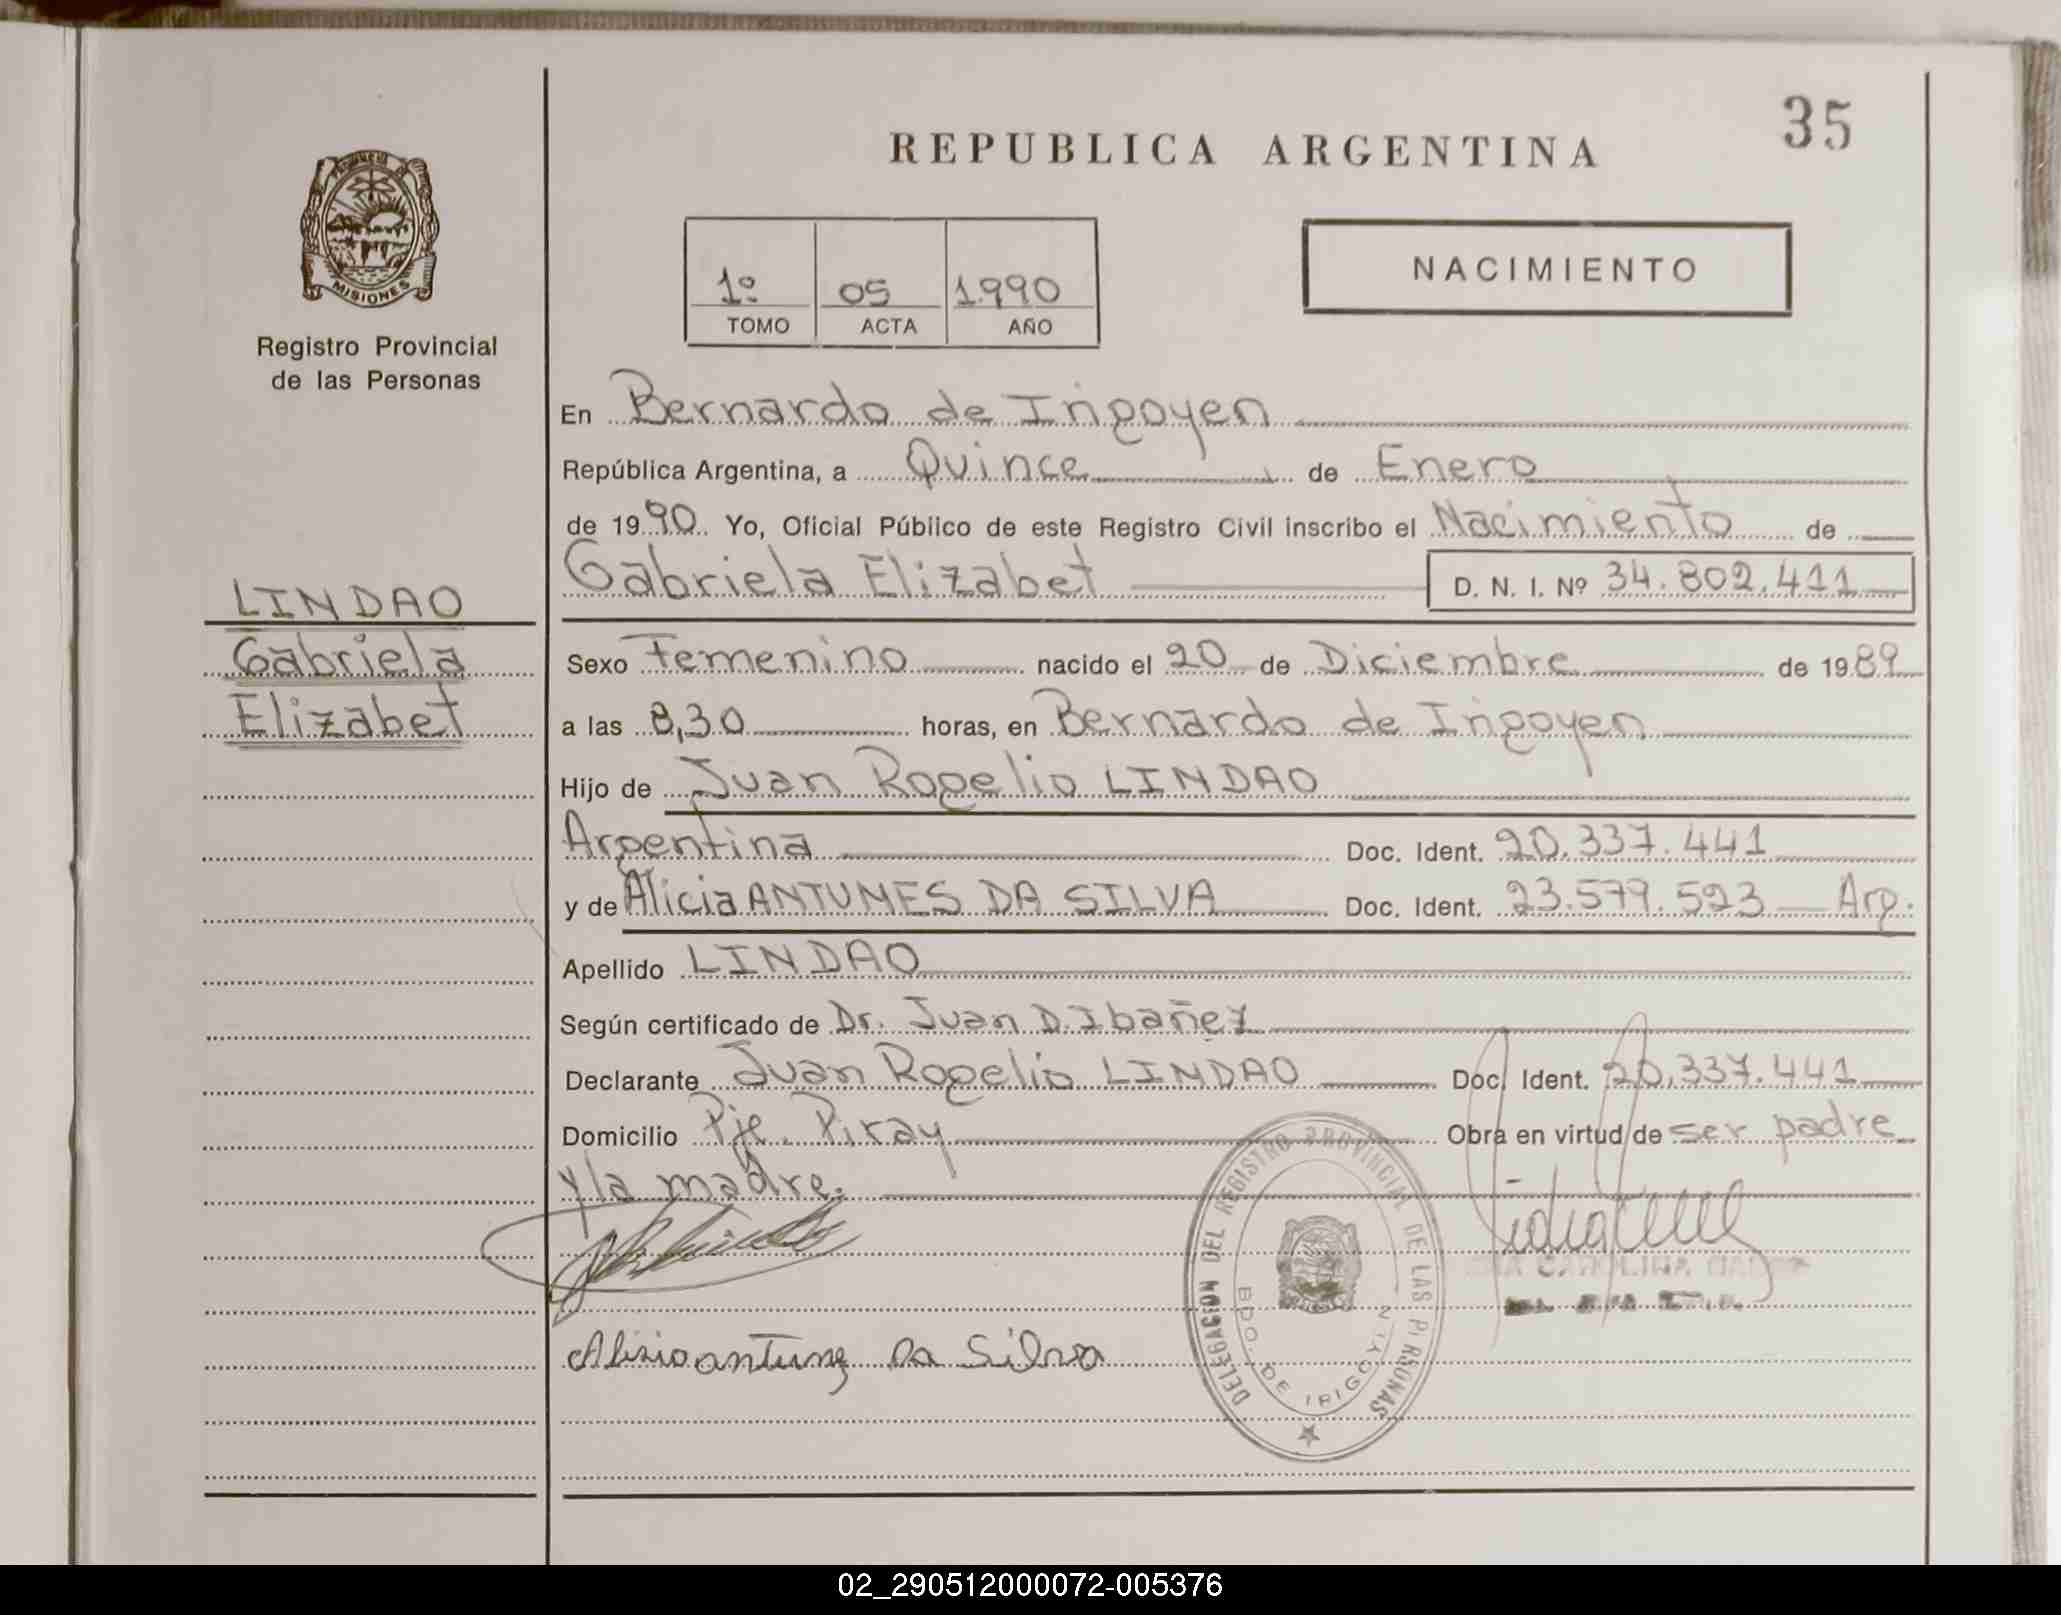 35
REPUBLICA ARGENTINA
PROVINCIA DE
MISIONES
Registro Provincial
de las Personas
1º 05 1.990
TOMO ACTA AÑO
NACIMIENTO
En Bernardo de Irigoyen
República Argentina, a Quince de Enero
de 1990. Yo, Oficial Público de este Registro Civil inscribo el Nacimiento de
Gabriela Elizabet D. N. I. Nº 34.802.411
LINDAO
Gabriela
Elizabet
Sexo Femenino nacido el 20 de Diciembre de 1989
a las 8,30 horas, en Bernardo de Irigoyen
Hijo de Juan Rogelio LINDAO
Argentina Doc. Ident. 20.337.441
y de Alicia ANTUNES DA SILVA Doc. Ident. 23.579.523 Arg.
Apellido LINDAO
Según certificado de Dr. Juan D. Ibañez
Declarante Juan Rogelio LINDAO Doc. Ident. 20.337.441
Domicilio Pje. Piray Obra en virtud de ser padre
y la madre.
DELEGACION DEL REGISTRO PROVINCIAL DE LAS PERSONAS
BDO. DE IRIGOYEN
CAROLINA
Alisia antunez Da Silva
02_290512000072-005376